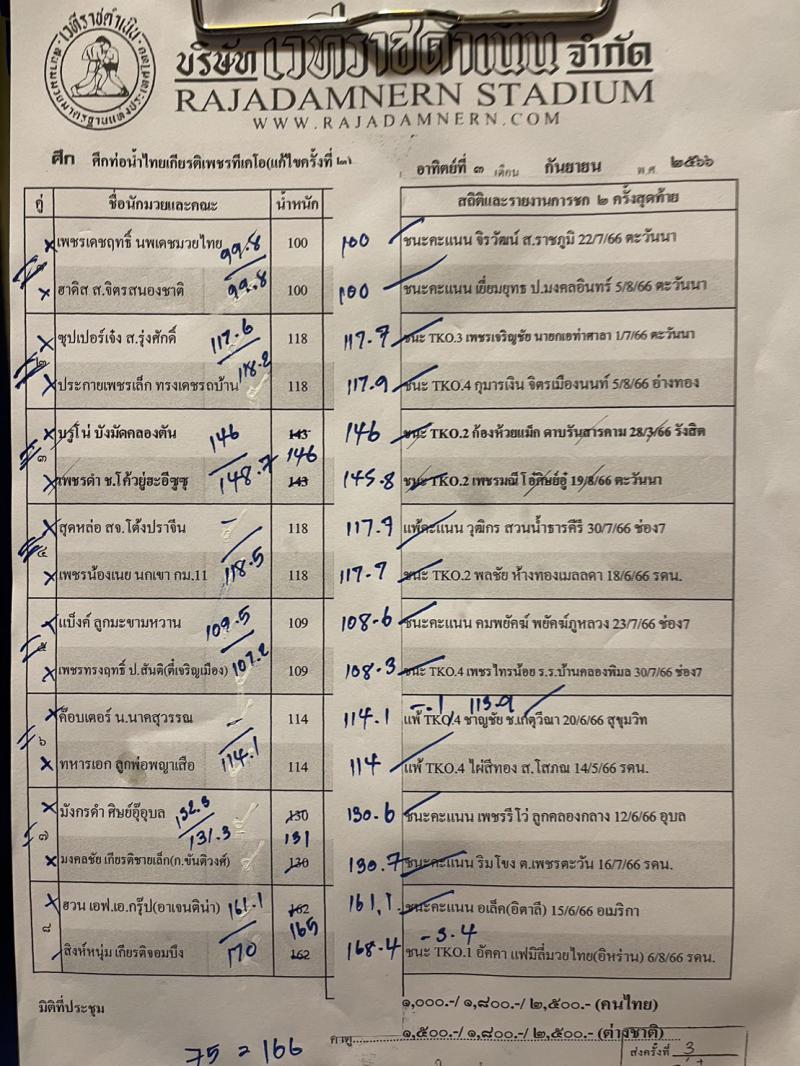 เวทีราชดำเนิน
บริษัท เวทีราชดำเนิน จำกัด
RAJADAMNERN STADIUM
WWW.RAJADAMNERN.COM
ศึก ศึกท่อน้ำไทยเกียรติเพชรทีเคโอ(แก้ไขครั้งที่ ๒) อาทิตย์ที่ ๓ เดือน กันยายน พ.ศ. ๒๕๖๖
คู่ ชื่อนักมวยและคณะ น้ำหนัก สถิติและรายงานการชก ๒ ครั้งสุดท้าย
เพชรเดชฤทธิ์ นพเดชมวยไทย 99.8 100 100 ชนะคะแนน จิรวัฒน์ ส.ราชภูมิ 22/7/66 ตะวันนา
๑
ฮาดิส ส.จิตรสนองชาติ 99.8 100 100 ชนะคะแนน เยี่ยมยุทธ ป.มงคลอินทร์ 5/8/66 ตะวันนา
ซุปเปอร์เจ๋ง ส.รุ่งศักดิ์ 117.6 118 117.7 ชนะ TKO.3 เพชรเจริญชัย นายกเอท่าศาลา 1/7/66 ตะวันนา
๒
ประกายเพชรเล็ก ทรงเดชรถบ้าน 118.2 118 117.9 ชนะ TKO.4 กุมารเงิน จิตรเมืองนนท์ 5/8/66 อ่างทอง
บรูโน่ บังมัดคลองตัน 146 143 146 ชนะ TKO.2 ก้องห้วยแม็ก ดาบรันสารคาม 28/3/66 รังสิต
๓ 146
เพชรดำ ช.โค้วยู่ฮะอีซูซุ 148.7 143 145.8 ชนะ TKO.2 เพชรมณี โอ๋ศิษย์อู๋ 19/8/66 ตะวันนา
สุดหล่อ สจ.โต้งปราจีน - 118 117.9 แพ้คะแนน วุฒิกร สวนน้ำธารคีรี 30/7/66 ช่อง7
๔
เพชรน้องเนย นกเขา กม.11 118.5 118 117.7 ชนะ TKO.2 พลชัย ห้างทองเมลลดา 18/6/66 รดน.
แบ็งค์ ลูกมะขามหวาน 109.5 109 108.6 ชนะคะแนน คมพยัคฆ์ พยัคฆ์ภูหลวง 23/7/66 ช่อง7
๕
เพชรทรงฤทธิ์ ป.สันติ(ตี๋เจริญเมือง) 107.2 109 108.3 ชนะ TKO.4 เพชรไทรน้อย ร.ร.บ้านคลองพิมล 30/7/66 ช่อง7
-.1 113.9
ค๊อบเตอร์ น.นาคสุวรรณ - 114 114.1 แพ้ TKO.4 ชาญชัย ช.เกตุวีณา 20/6/66 สุขุมวิท
๖
ทหารเอก ลูกพ่อพญาเสือ 114.1 114 114 แพ้ TKO.4 ไผ่สีทอง ส.โสภณ 14/5/66 รดน.
มังกรดำ ศิษย์อุ๊อุบล 132.3 130 130.6 ชนะคะแนน เพชรรีโว่ ลูกคลองกลาง 12/6/66 อุบล
๗ 131.3 131
มงคลชัย เกียรติชายเล็ก(ก.ขันติวงศ์) 130 130.7 ชนะคะแนน ริมโขง ต.เพชรตะวัน 16/7/66 รดน.
ฮวน เอฟ.เอ.กรุ๊ป(อาเจนติน่า) 161.1 162 161.1 ชนะคะแนน อเล็ค(อิตาลี) 15/6/66 อเมริกา
๘ 165 -3.4
สิงห์หนุ่ม เกียรติจอมบึง 170 162 168.4 ชนะ TKO.1 อัคคา แฟมิลี่มวยไทย(อิหร่าน) 6/8/66 รดน.
มิติที่ประชุม ๑,๐๐๐.-/ ๑,๘๐๐.-/ ๒,๕๐๐.- (คนไทย)
๑,๕๐๐.-/ ๑,๘๐๐.-/ ๒,๕๐๐.- (ต่างชาติ)
75 = 166 ส่งครั้งที่ 3